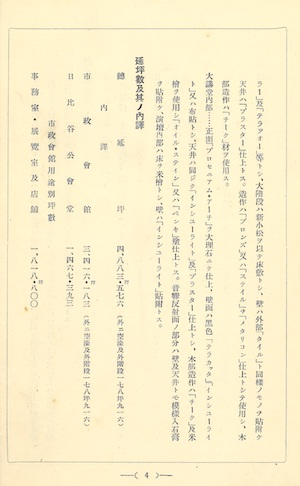 ラー」及「テラヅォー」等トシ、大階段ハ新小松ヲ以テ床敷トシ、壁ハ外部「タイル」ト同樣ノモノヲ貼附ケ
天井ハ「プラスター」仕上トス。造作ハ「ブロンズ」又ハ「スティル」ヲ「メタリコン」仕上トシテ使用シ、木
部造作ハ「チーク」材ヲ使用ス。
大講堂內部……正面「プロセニアム・アーチ」ヲ大理石ニテ仕上、壁面ハ黑色「テラカッタ」「インシユーライ
ト」又ハ布貼トシ、天井ハ同ジク「インシユーライト」及「プラスター」仕上トシ、木部造作ハ「チーク」及米
檜ヲ使用シ「オイル・ステイン」又ハ「ペンキ」塗仕上トス。音響反射面ノ部分ハ壁及天井トモ模樣入石膏
ヲ貼附ケ、演壇內部ハ床ヲ米檜トシ、壁ハ「インシユーライト」貼附トス。
延坪數及其ノ內譯
總延坪 四、八八三・五七六 (外ニ空濠及外階段一七八坪九一六)
內譯
市政會館 三、四一六・一八三 (外ニ空濠及外階段一七八坪九一六)
日比谷公會堂 一、四六七・三九三
市政會館用途別坪數
事務室・展覽室及店舖 一、八一八・八〇〇
( 4 )